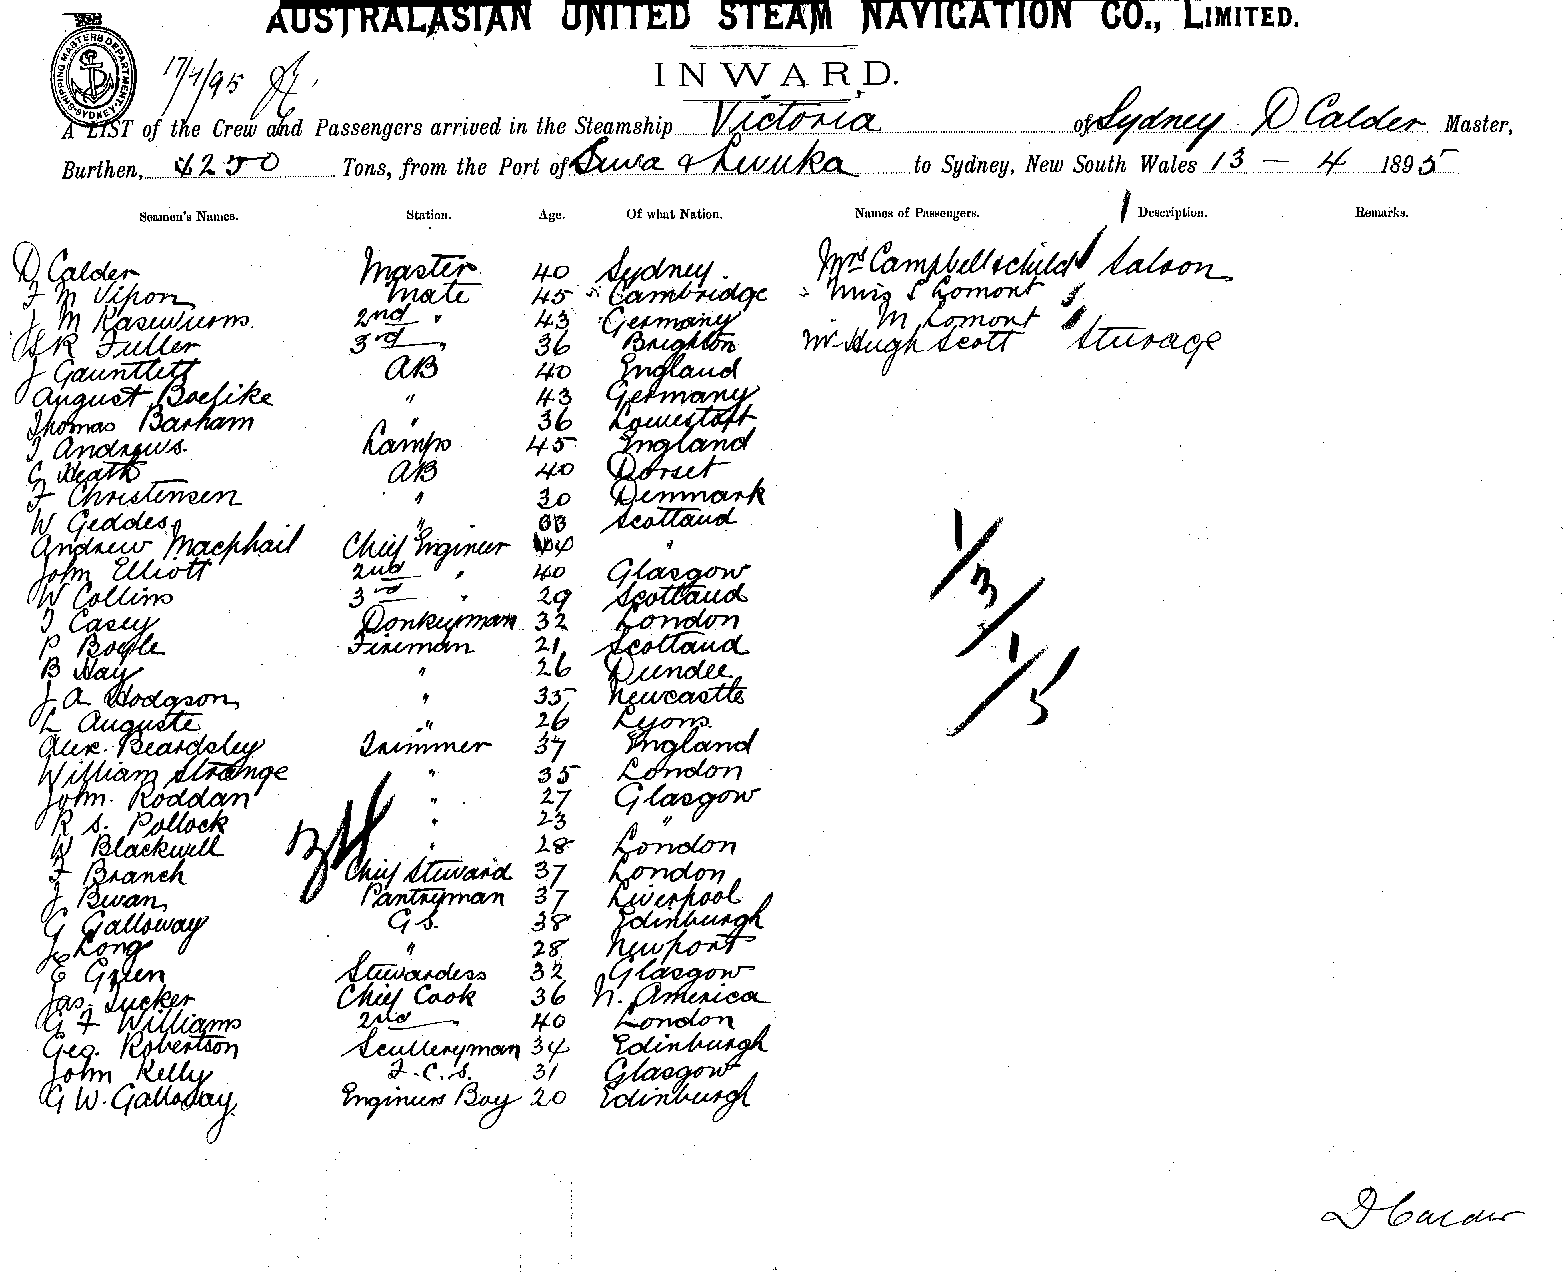 AUSTRALASIAN UNITED STEAM NAVIGATION CO., LIMITED.
SHIPPING MASTERS DEPARTMENT SYDNEY
INWARD.
A LIST of the Crew and Passengers arrived in the Steamship Victoria of Sydney D Calder Master,
Burthen, Tons, from the Port of Suva & Levuka to Sydney, New South Wales 13 — 4 1895
Seamen's Names. Station. Age. Of what Nation. Names of Passengers. Description. Remarks.
D Calder Master 40 Sydney. Mrs Campbell & child Saloon
F M Vipon Mate 45 Cambridge " Miss S Lomont
J M 2nd " 43 Germany M Lomont
Fuller 3rd " 36 Brighton Mr Hugh Scott Sturage
J Gauntlett AB 40 England
August " 43 Germany
Thomas Barham " 36 Lowestoft
T Andrews. Lamps 45 England
C Heath AB 40 Dorset
F Christensen " 30 Denmark
W Geddes " 33 Scotland
Andrew Macphail Chief Engineer 44 "
John Elliott 2nd " 40 Glasgow
W Collins 3rd " 29 Scotland
T Casey Donkeyman 32 London
P Boyle Fireman 21 Scotland
B Hay " 26 Dundee
J A Hodgson " 35 Newcastle
L Auguste " 26 Lyons.
Alex. Beardsley Trimmer 37 England
William Strange " 35 London
John Roddan " 27 Glasgow
R S. Pollock " 23 "
W Blackwell " 28 London
F Branch Chief Steward 37 London
J Bevan Pantryman 37 Liverpool
G Galloway G S. 38 Edinburgh
J Long " 28 Newport
E Green Stewardess 32 Glasgow
Jas. Tucker Chief Cook 36 N. America
G F Williams 2nd " 40 London
Geo. Robertson Sculleryman 34 Edinburgh
John Kelly F.C.S. 31 Glasgow
G W. Galloway Engineers Boy 20 Edinburgh
1/3/1/5
D Calder